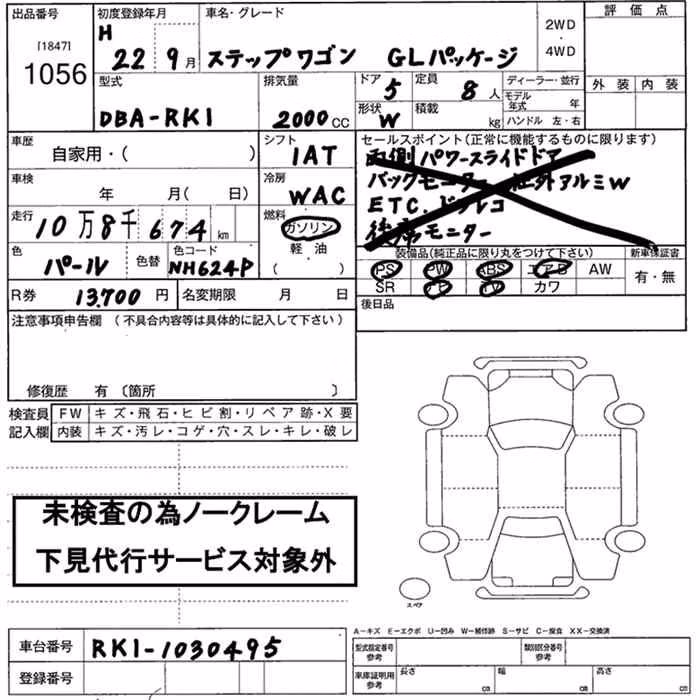 出品番号
[1847]
1056
初度登録年月
H
22 9月
車名・グレード
ステップワゴン GLパッケージ
2WD
・
4WD
評価点
外装 内装
型式
DBA-RK1
排気量
2000CC
ドア
5
定員
8人
形状
W
積載
kg
ディーラー・並行
モデル年式 年
ハンドル 左・右
車歴
自家用・( )
シフト
1AT
車検
年 月( 日)
冷房
WAC
走行
10万8千674km
燃料
ガソリン
軽油
( )
色
パール
色替
色コード
NH624P
R券 13,700円
名変期限 月 日
セールスポイント(正常に機能するものに限ります)
両側パワースライドドア
バックモニター 社外アルミW
ETC.ドラレコ
後席モニター
装備品(純正品に限り丸をつけて下さい)
PS PW ABS エアB AW
SR ナビ TV カワ
新車保証書
有・無
後日品
注意事項申告欄(不具合内容等は具体的に記入して下さい)
修復歴 有〔箇所 〕
検査員記入欄
FW キズ・飛石・ヒビ割・リペア跡・X要
内装 キズ・汚レ・コゲ・穴・スレ・キレ・破レ
未検査の為ノークレーム
下見代行サービス対象外
スペア
車台番号 RK1-1030495
登録番号
A-キズ E-エクボ U-凹み W-補修跡 S-サビ C-腐食 XX-交換済
型式指定番号
参考
類別区分番号
参考
車庫証明用
参考
長さ cm
幅 cm
高さ cm